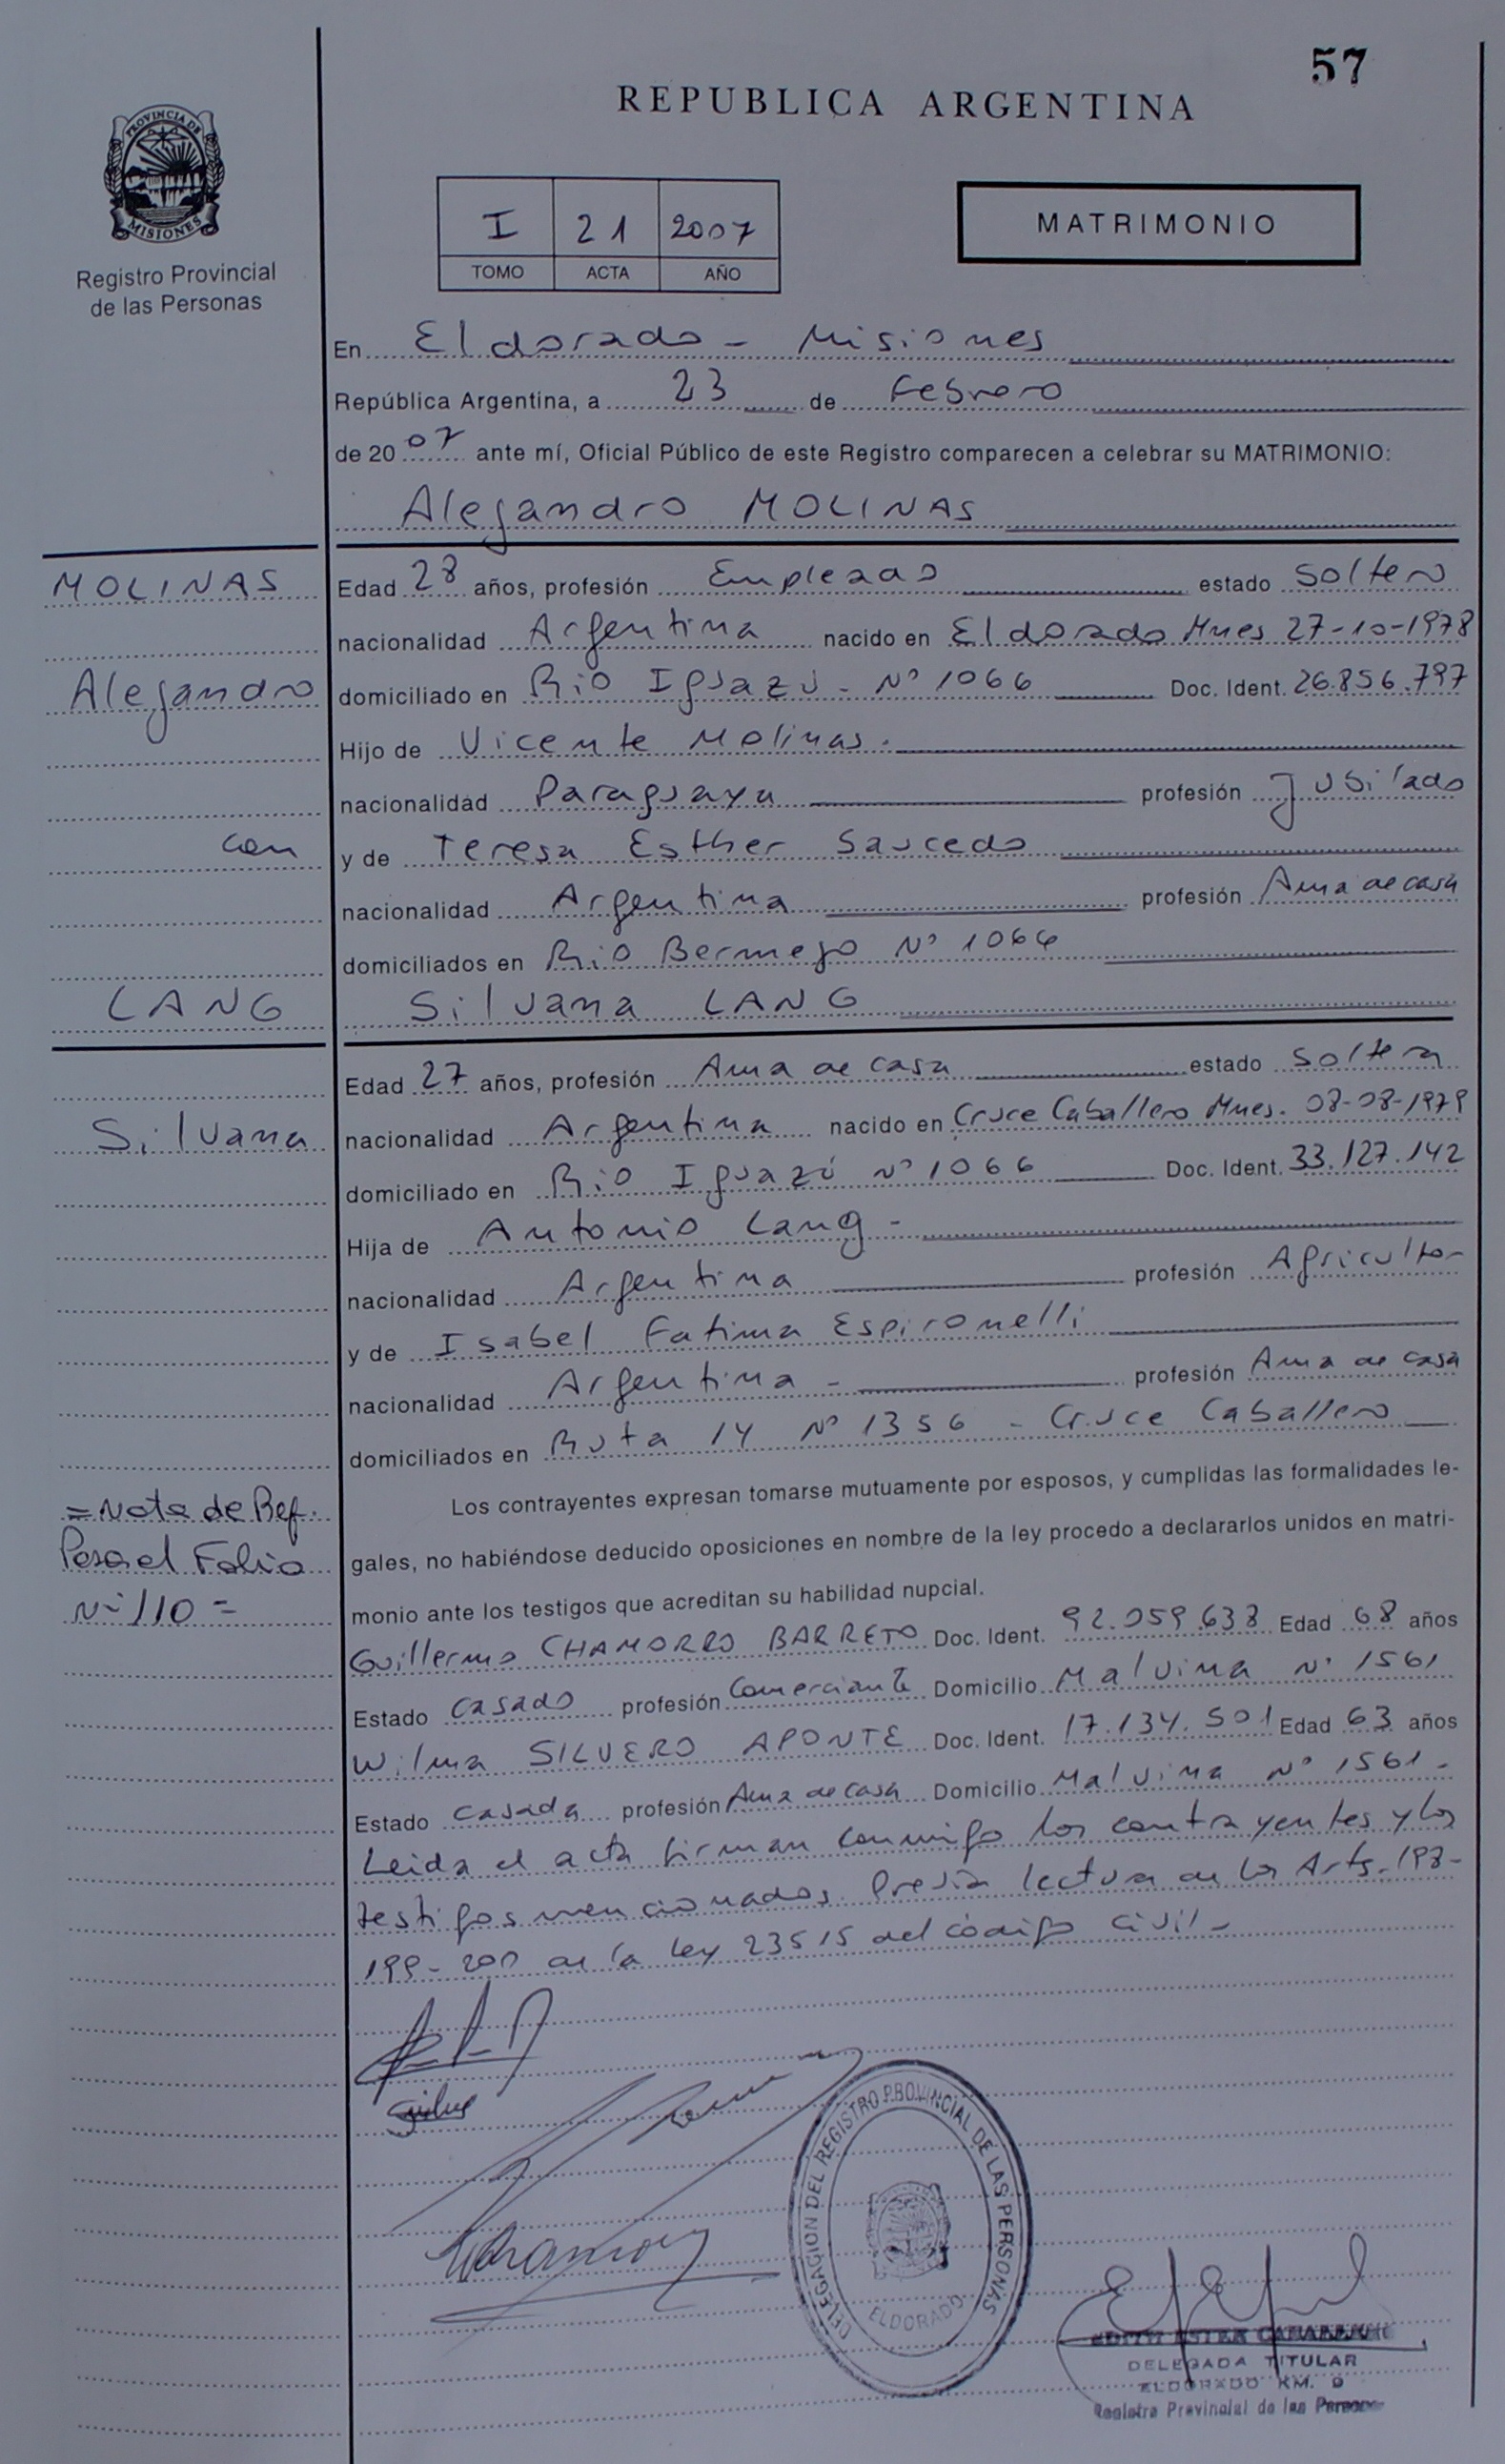 57
REPUBLICA ARGENTINA
PROVINCIA DE
MISIONES
Registro Provincial
de las Personas
I 21 2007
TOMO ACTA AÑO
MATRIMONIO
En Eldorado - Misiones
República Argentina, a 23 de Febrero
de 2007 ante mí, Oficial Público de este Registro comparecen a celebrar su MATRIMONIO:
Alejandro MOLINAS
MOLINAS
Edad 28 años, profesión Empleado estado soltero
nacionalidad Argentina nacido en Eldorado Mnes 27-10-1978
Alejandro
domiciliado en Rio Iguazú - Nº 1066 Doc. Ident. 26.856.797
Hijo de Vicente Molinas.
nacionalidad Paraguaya profesión Jubilado
con
y de Teresa Esther Saucedo
nacionalidad Argentina profesión Ama de casa
domiciliados en Rio Bermejo Nº 1066
LANG
Silvana LANG
Edad 27 años, profesión Ama de casa estado soltera
Silvana
nacionalidad Argentina nacido en Cruce Caballero Mnes. 08-08-1979
domiciliado en Rio Iguazú Nº 1066 Doc. Ident. 33.127.142
Hija de Antonio Lang -
nacionalidad Argentina profesión Agricultor
y de Isabel Fatima Espironelli
nacionalidad Argentina - profesión Ama de casa
domiciliados en Ruta 14 Nº 1356 - Cruce Caballero
= Nota de Ref.
Pasa al Folio
Nº 110 =
Los contrayentes expresan tomarse mutuamente por esposos, y cumplidas las formalidades le-
gales, no habiéndose deducido oposiciones en nombre de la ley procedo a declararlos unidos en matri-
monio ante los testigos que acreditan su habilidad nupcial.
Guillermo CHAMORRO BARRETO Doc. Ident. 92.059.638 Edad 68 años
Estado casado profesión Comerciante Domicilio Malvina Nº 1561
Wilma SILVERO APONTE Doc. Ident. 17.134.501 Edad 63 años
Estado casada profesión Ama de casa Domicilio Malvina Nº 1561 -
Leida el acta firman conmigo los contrayentes y los
testigos mencionados. Previa lectura de los Arts. 198-
199-200 de la ley 23515 del código civil -
DELEGACION DEL REGISTRO PROVINCIAL DE LAS PERSONAS
ELDORADO
DELEGADA TITULAR
ELDORADO KM. 9
Registro Provincial de las Personas